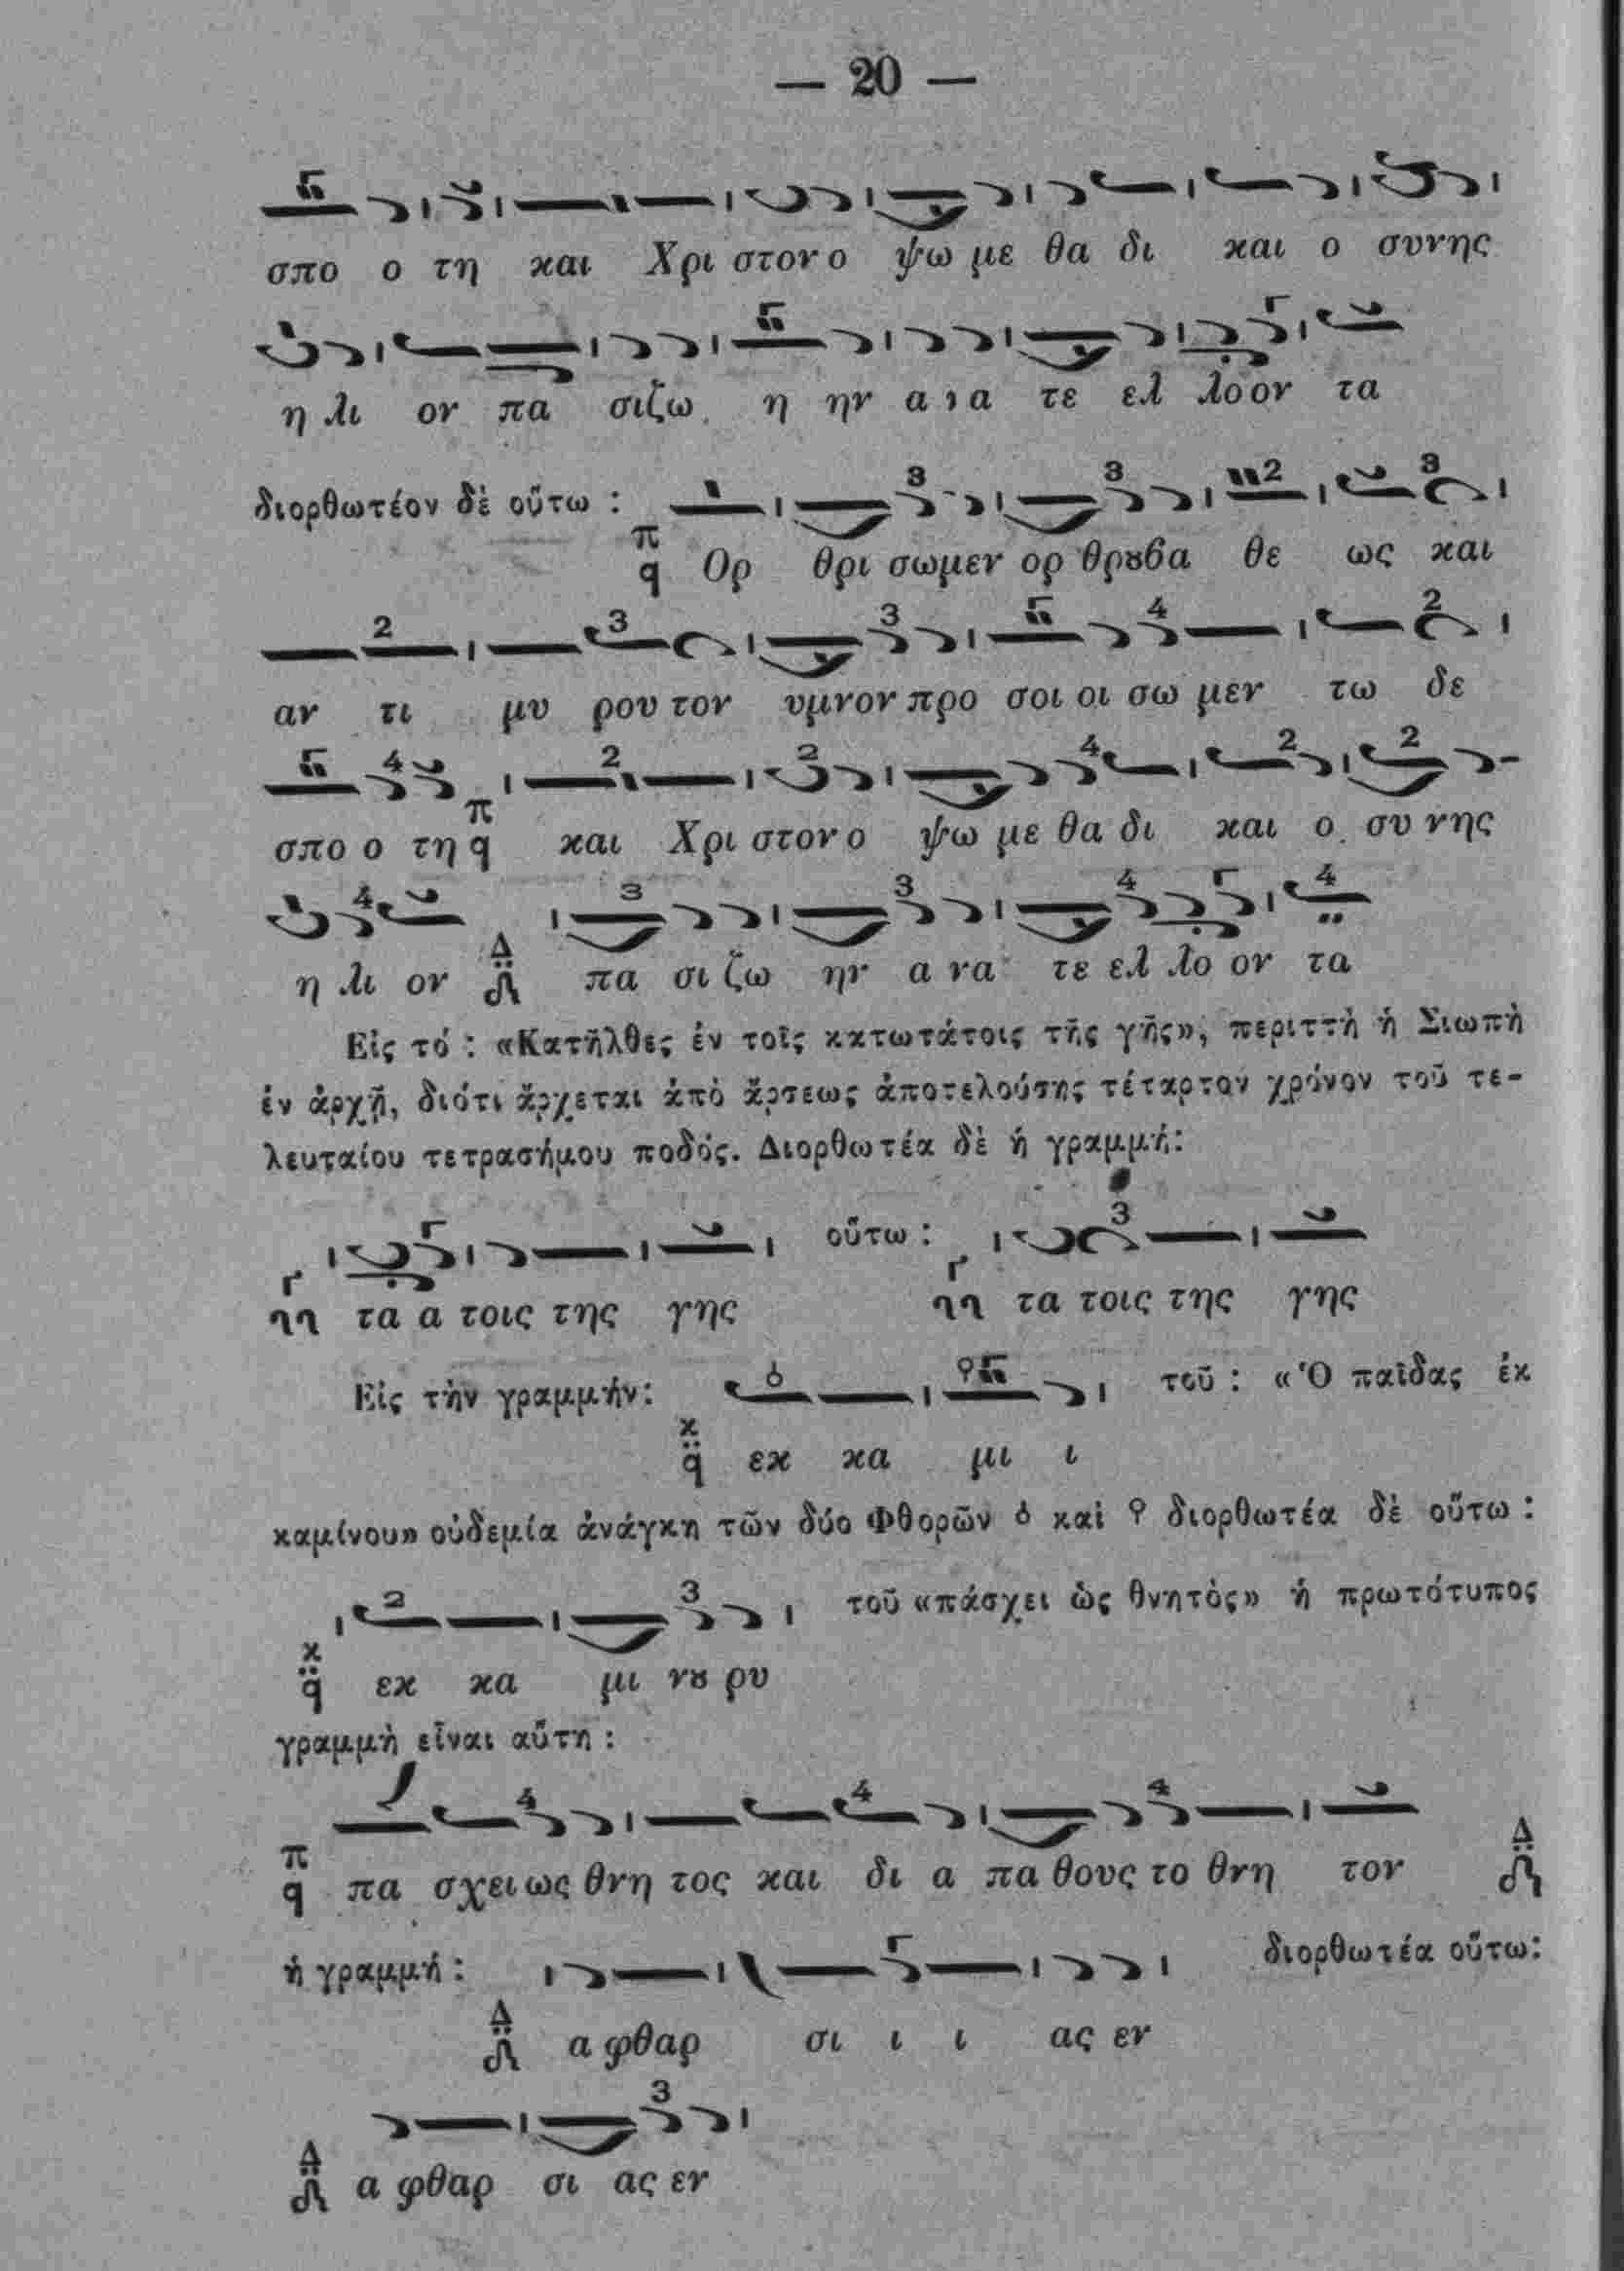 — 20 —
σπο ο τη και Χρι στον ο ψω με θα δι και ο συνης
η λι ον πα σιζω η ην α ν α τε ελ λο ον τα
διορθωτέον δὲ οὕτω :
Ορ θρι σωμεν ορ θρȣ βα θε ως και
αν τι μυ ρου τον υμνον προ σοι οι σω μεν τω δε
σπο ο τη και Χρι στον ο ψω με θα δι και ο συ νης
η λι ον πα σι ζω ην α να τε ελ λο ον τα
Εἰς τό : «Κατῆλθες ἐν τοῖς κατωτάτοις τῆς γῆς», περιττὴ ἡ Σιωπὴ
ἐν ἀρχῇ, διότι ἄρχεται ἀπὸ ἄρσεως ἀποτελούσης τέταρτον χρόνον τοῦ τε-
λευταίου τετρασήμου ποδός. Διορθωτέα δὲ ἡ γραμμή:
οὕτω :
τα α τοις της γης τα τοις της γης
Εἰς τὴν γραμμήν: τοῦ : «Ὁ παῖδας ἐκ
εκ κα μι ι
καμίνου» οὐδεμία ἀνάγκη τῶν δύο Φθορῶν καὶ διορθωτέα δὲ οὕτω :
τοῦ «πάσχει ὡς θνητὸς» ἡ πρωτότυπος
εκ κα μι νȣ ρυ
γραμμὴ εἶναι αὕτη :
πα σχει ως θνη τος και δι α πα θους το θνη τον
ἡ γραμμή : διορθωτέα οὕτω:
α φθαρ σι ι ι ας εν
α φθαρ σι ας εν